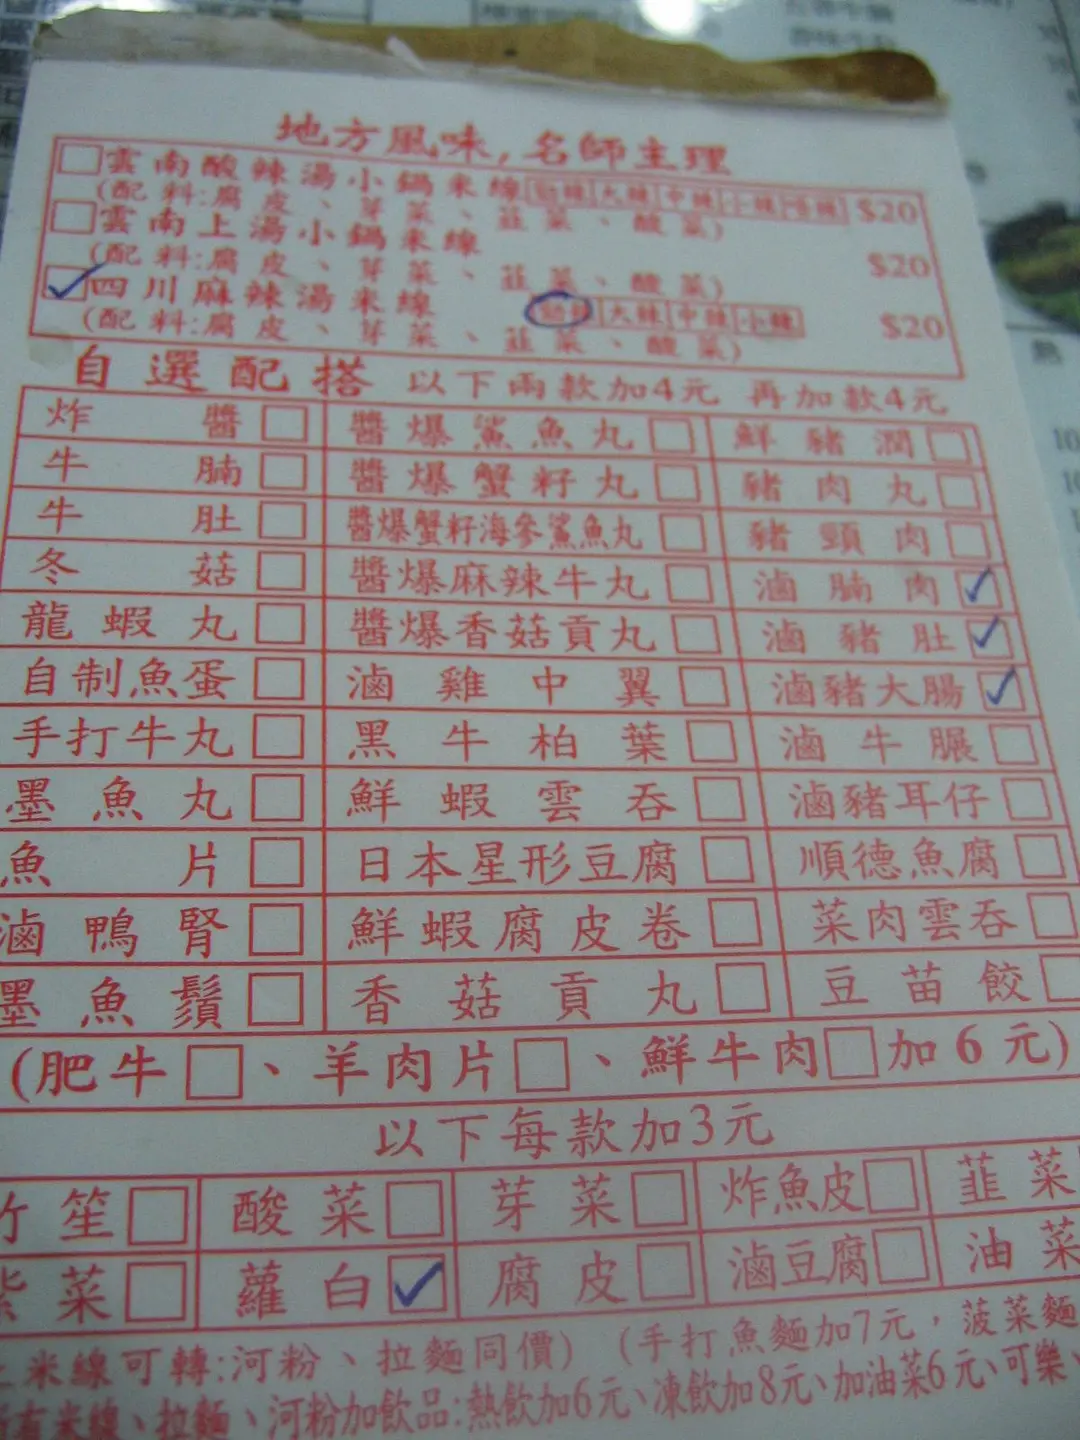 地方風味,名師主理
雲南酸辣湯小鍋米線 勁辣 大辣 中辣 小辣 $20
(配料:腐皮、芽菜、韮菜、酸菜)
雲南上湯小鍋米線 $20
(配料:腐皮、芽菜、韮菜、酸菜)
四川麻辣湯米線 勁辣 大辣 中辣 小辣 $20
(配料:腐皮、芽菜、韮菜、酸菜)
自選配搭 以下兩款加4元 再加款4元
炸醬 醬爆鯊魚丸 鮮豬潤
牛腩 醬爆蟹籽丸 豬肉丸
牛肚 醬爆蟹籽海參鯊魚丸 豬頸肉
冬菇 醬爆麻辣牛丸 滷腩肉
龍蝦丸 醬爆香菇貢丸 滷豬肚
自制魚蛋 滷雞中翼 滷豬大腸
手打牛丸 黑牛柏葉 滷牛𦟌
墨魚丸 鮮蝦雲吞 滷豬耳仔
魚片 日本星形豆腐 順德魚腐
滷鴨腎 鮮蝦腐皮卷 菜肉雲吞
墨魚鬚 香菇貢丸 豆苗餃
(肥牛、羊肉片、鮮牛肉加6元)
以下每款加3元
竹笙 酸菜 芽菜 炸魚皮 韮菜
紫菜 蘿白 腐皮 滷豆腐 油菜
米線可轉:河粉、拉麵同價) (手打魚麵加7元,菠菜麵
所有米線、拉麵、河粉加飲品:熱飲加6元、凍飲加8元、加油菜6元、可樂、